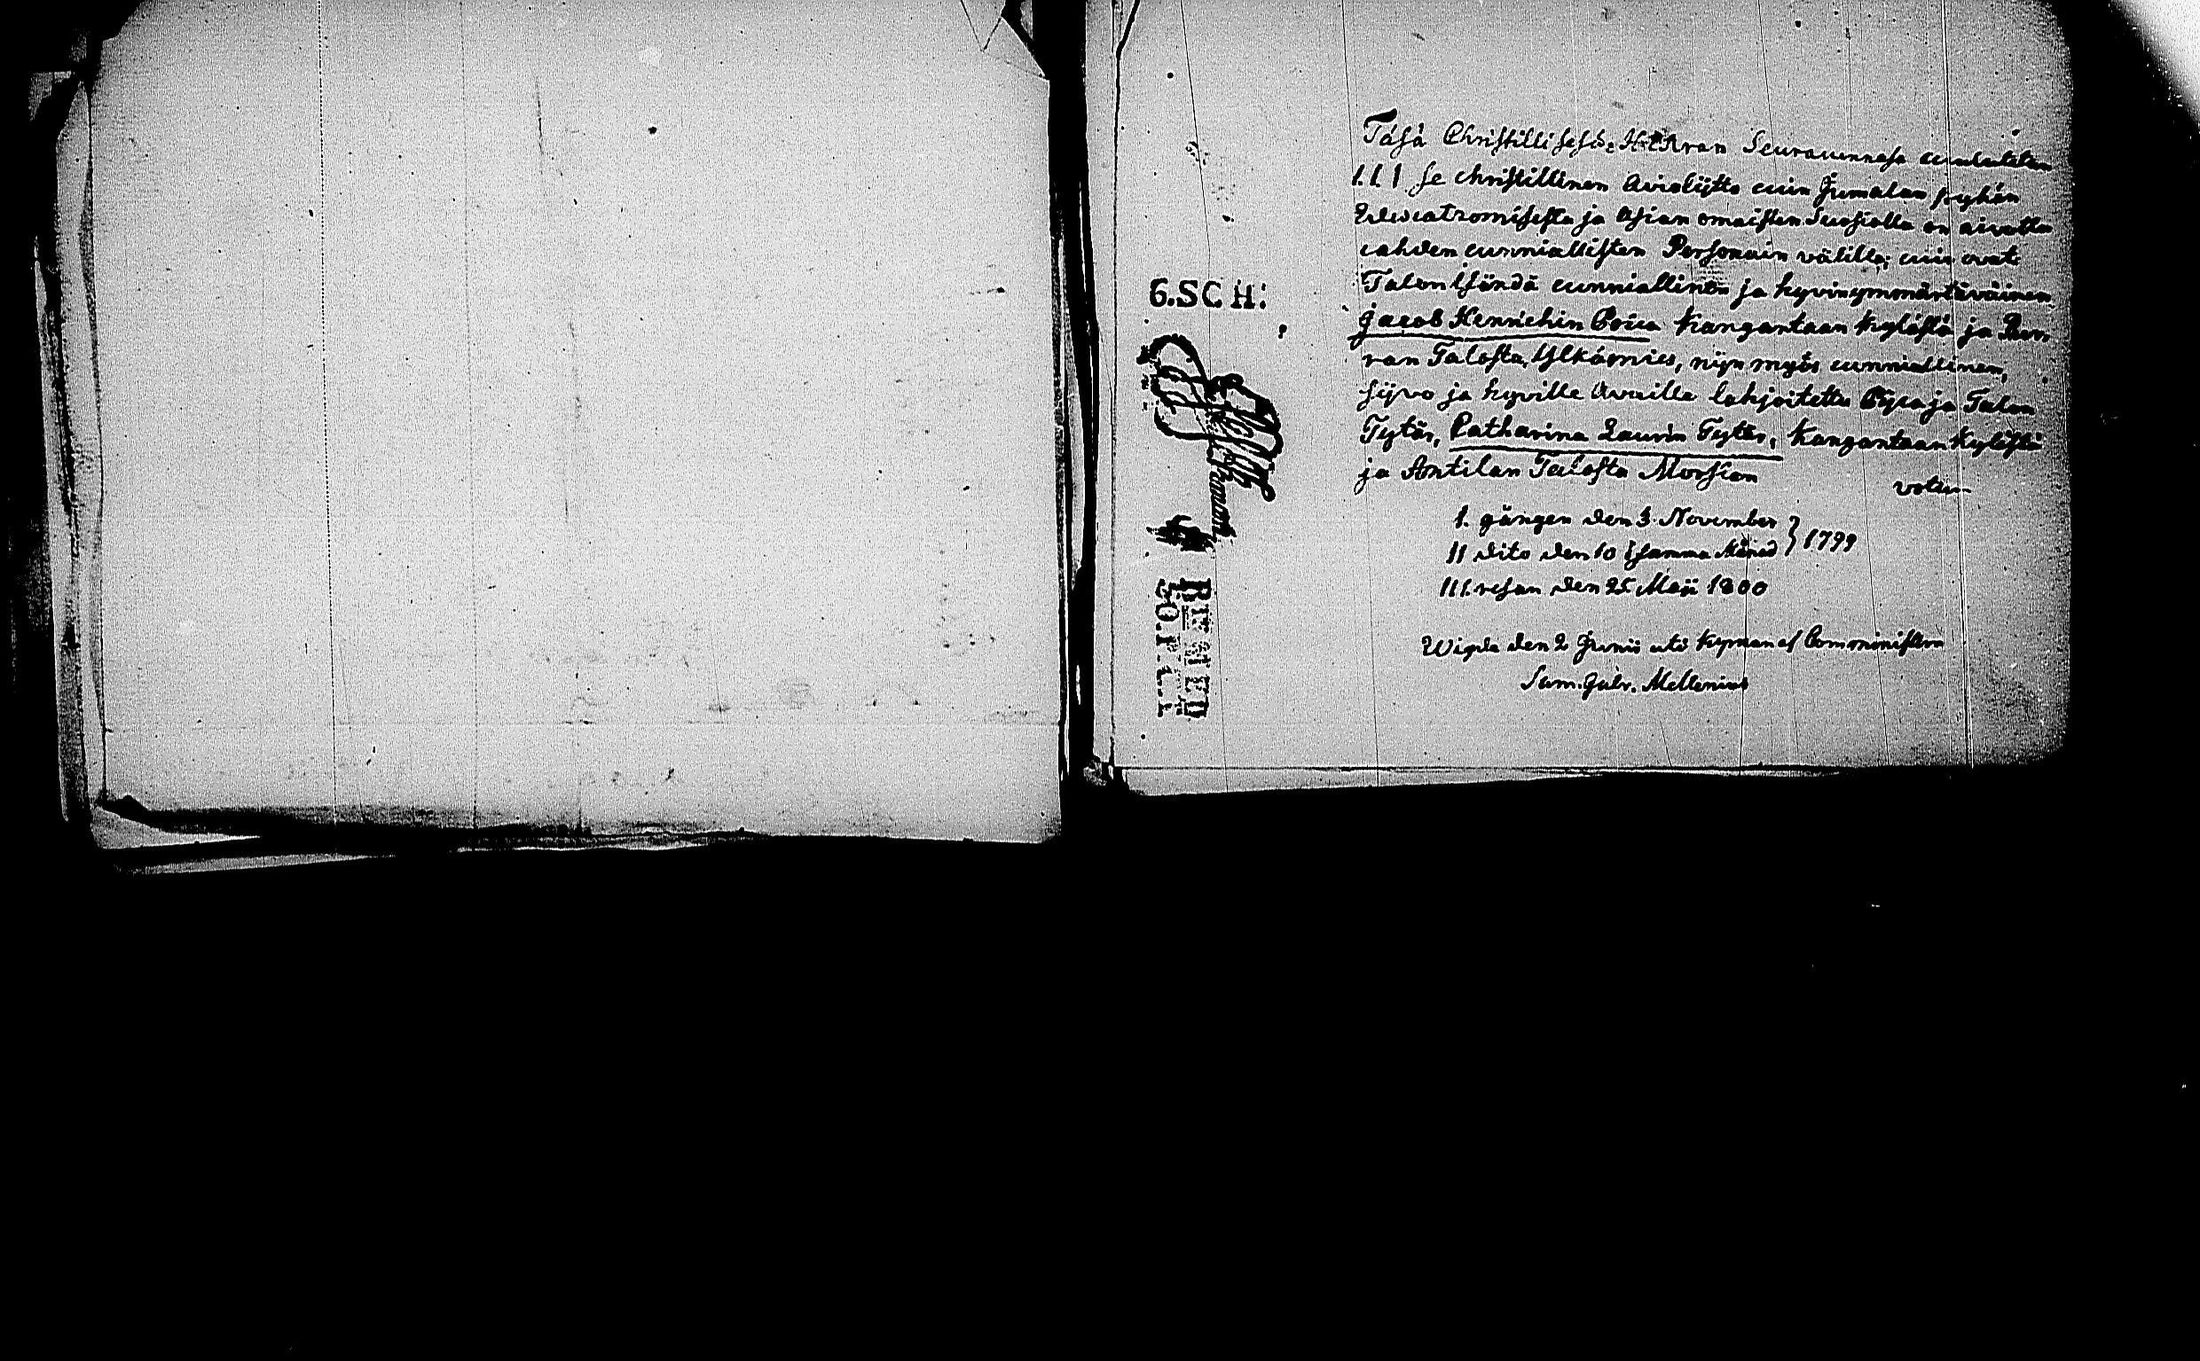 6.SCH:
Täsä Christillisesä HERran Seuracunnasa cuulutetan
I.I.I se christillinen Aviokäsky cuin Jumalan pyhän
ja Asian omaisten Suosiolla on aivottu
cahden cunniallisten Personain välille, cuin ovat
Talon Isändä cunniallinen ja hyvinymmärtäväinen
Jacob Henrichin Poica Kangantaan Kylästä ja
ran Talosta Ylkämies, nijn myös cunniallinen,
sijvo ja hyville Avuille lahjoitettu Pijca ja Talon
Tytär, Catharina Laurin Tytär, Kangantaan Kylästä
ja Antilan Talosta Morsian
I. gången den 3. November } 1799
II dito den 10 samma Månad
III. resan den 25 Maji 1800
Wigde den 2 Junii uti Kyrkan af Comministern
Sam. Gabr. Mellenius